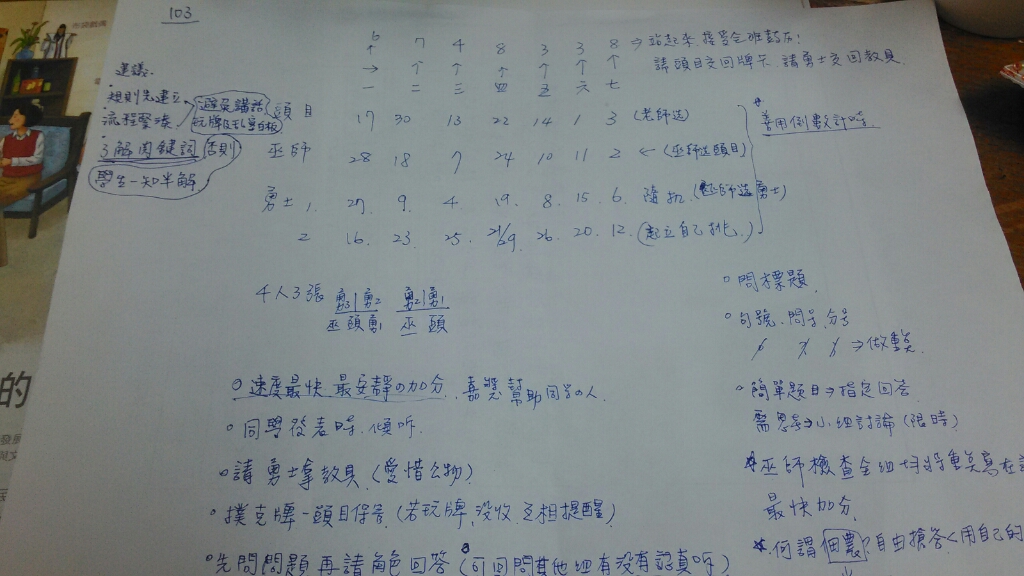 103
6 7 4 8 3 3 8 → 站起來接受全班鼓勵!
↑ ↑ ↑ ↑ ↑ ↑
→
請頭目交回牌卡、請勇士交回教具
一 二 三 四 五 六 七
建議:
・規則先建立
・流程緊湊
避免講話
玩牌及亂寫白板
・了解關鍵詞 否則
學生一知半解
頭目 17 30 13 22 14 1 3 (老師選)
巫師 28 18 7 24 10 11 2 ← (巫師選頭目)
勇士 1. 27. 9. 4. 19. 8. 15. 6. 隨機 (巫師選勇士)
2 16. 23. 25. 21/29. 26. 20. 12. (起立自己挑)
* 善用倒數計時
4人3張 勇1|勇2 勇2|勇1
巫 頭 勇1 巫 頭
○ 速度最快 最安靜の加分、嘉獎幫助同學の人
○ 同學發表時、傾听.
○ 請勇士拿教具 (愛惜公物)
○ 撲克牌-頭目保管 (若玩牌,沒收,互相提醒)
○ 先問問題 再請角色回答 (可回問其他組有沒有認真听)
○ 問標題.
○ 句號、問号、分号
⇒ 做重點.
○ 簡單題目→指定回答
需思考→小組討論 (限時)
* 巫師檢查全組 將重點寫在
最快加分
*. 何謂 自由搶答 用自己的
的